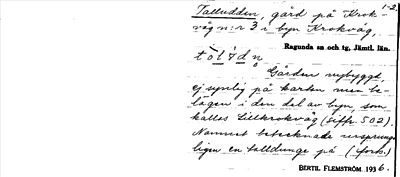 1-2.
Talludden, gård på Krok-
våg n:r 3 i byn Krokvåg,
Ragunda sn och tg, Jämtl. län.
Gården nybyggd,
ej synlig på kartan men be-
lägen i den del av byn, som
kallas Lillkrokvåg (siffr. 502).
Namnet betecknade ursprung-
ligen en talldunge på
BERTIL FLEMSTRÖM. 1936.